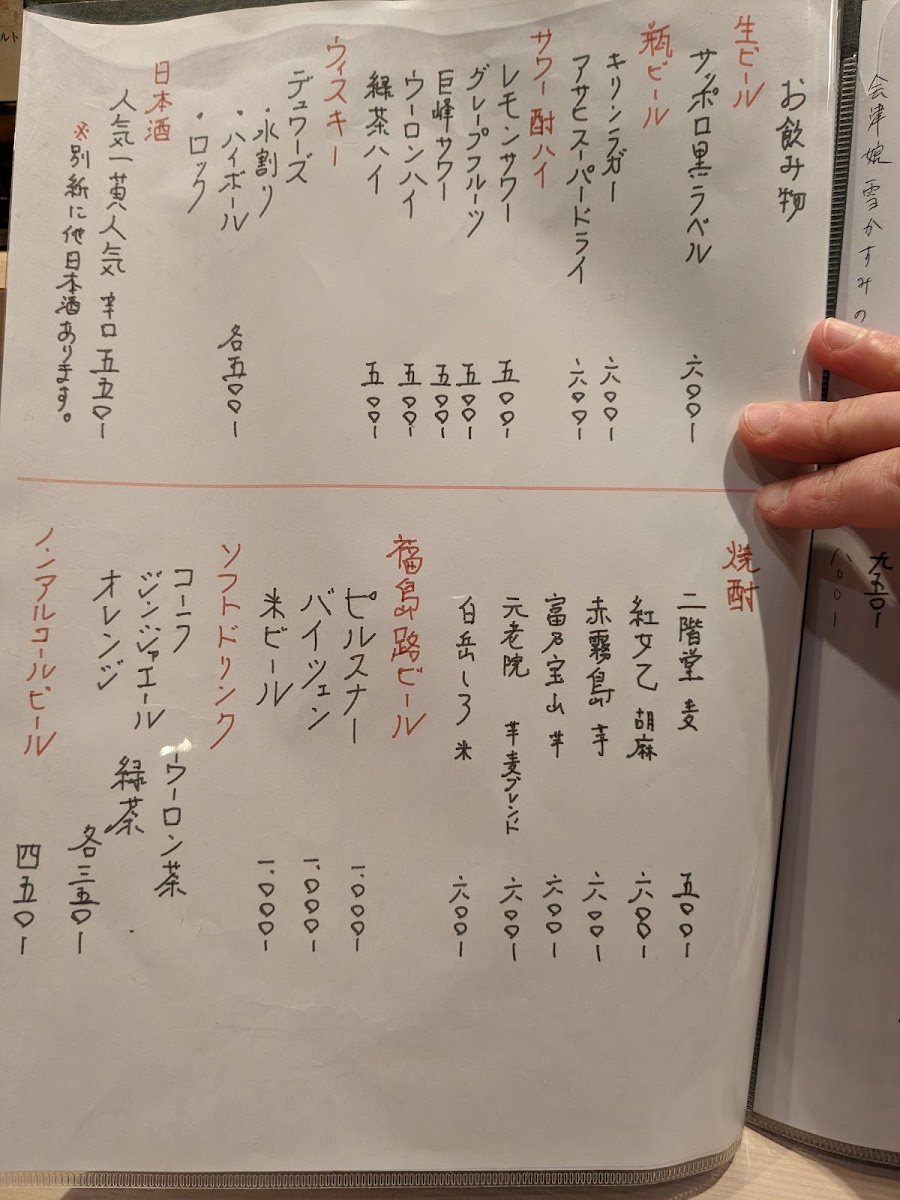 会津娘 雪かすみの
九五〇ー
八〇〇ー
お飲み物
生ビール
サッポロ黒ラベル 六〇〇ー
瓶ビール
キリンラガー 六〇〇ー
アサヒスーパードライ 六〇〇ー
サワー酎ハイ
レモンサワー 五〇〇ー
グレープフルーツ 五〇〇ー
巨峰サワー 五〇〇ー
ウーロンハイ 五〇〇ー
緑茶ハイ 五〇〇ー
ウィスキー
デュワーズ
・水割り
・ハイボール 各五〇〇ー
・ロック
日本酒
人気一 黄人気 辛口 五五〇ー
※別紙に他日本酒あります。
焼酎
二階堂 麦 五〇〇ー
紅乙女 胡麻 六〇〇ー
赤霧島 芋 六〇〇ー
富乃宝山 芋 六〇〇ー
元老院 芋麦ブレンド 六〇〇ー
白岳しろ 米 六〇〇ー
福島路ビール
ピルスナー 一、〇〇〇ー
バイツェン 一、〇〇〇ー
米ビール 一、〇〇〇ー
ソフトドリンク
コーラ ウーロン茶
ジンジャエール 緑茶
オレンジ 各三五〇ー
ノンアルコールビール 四五〇ー